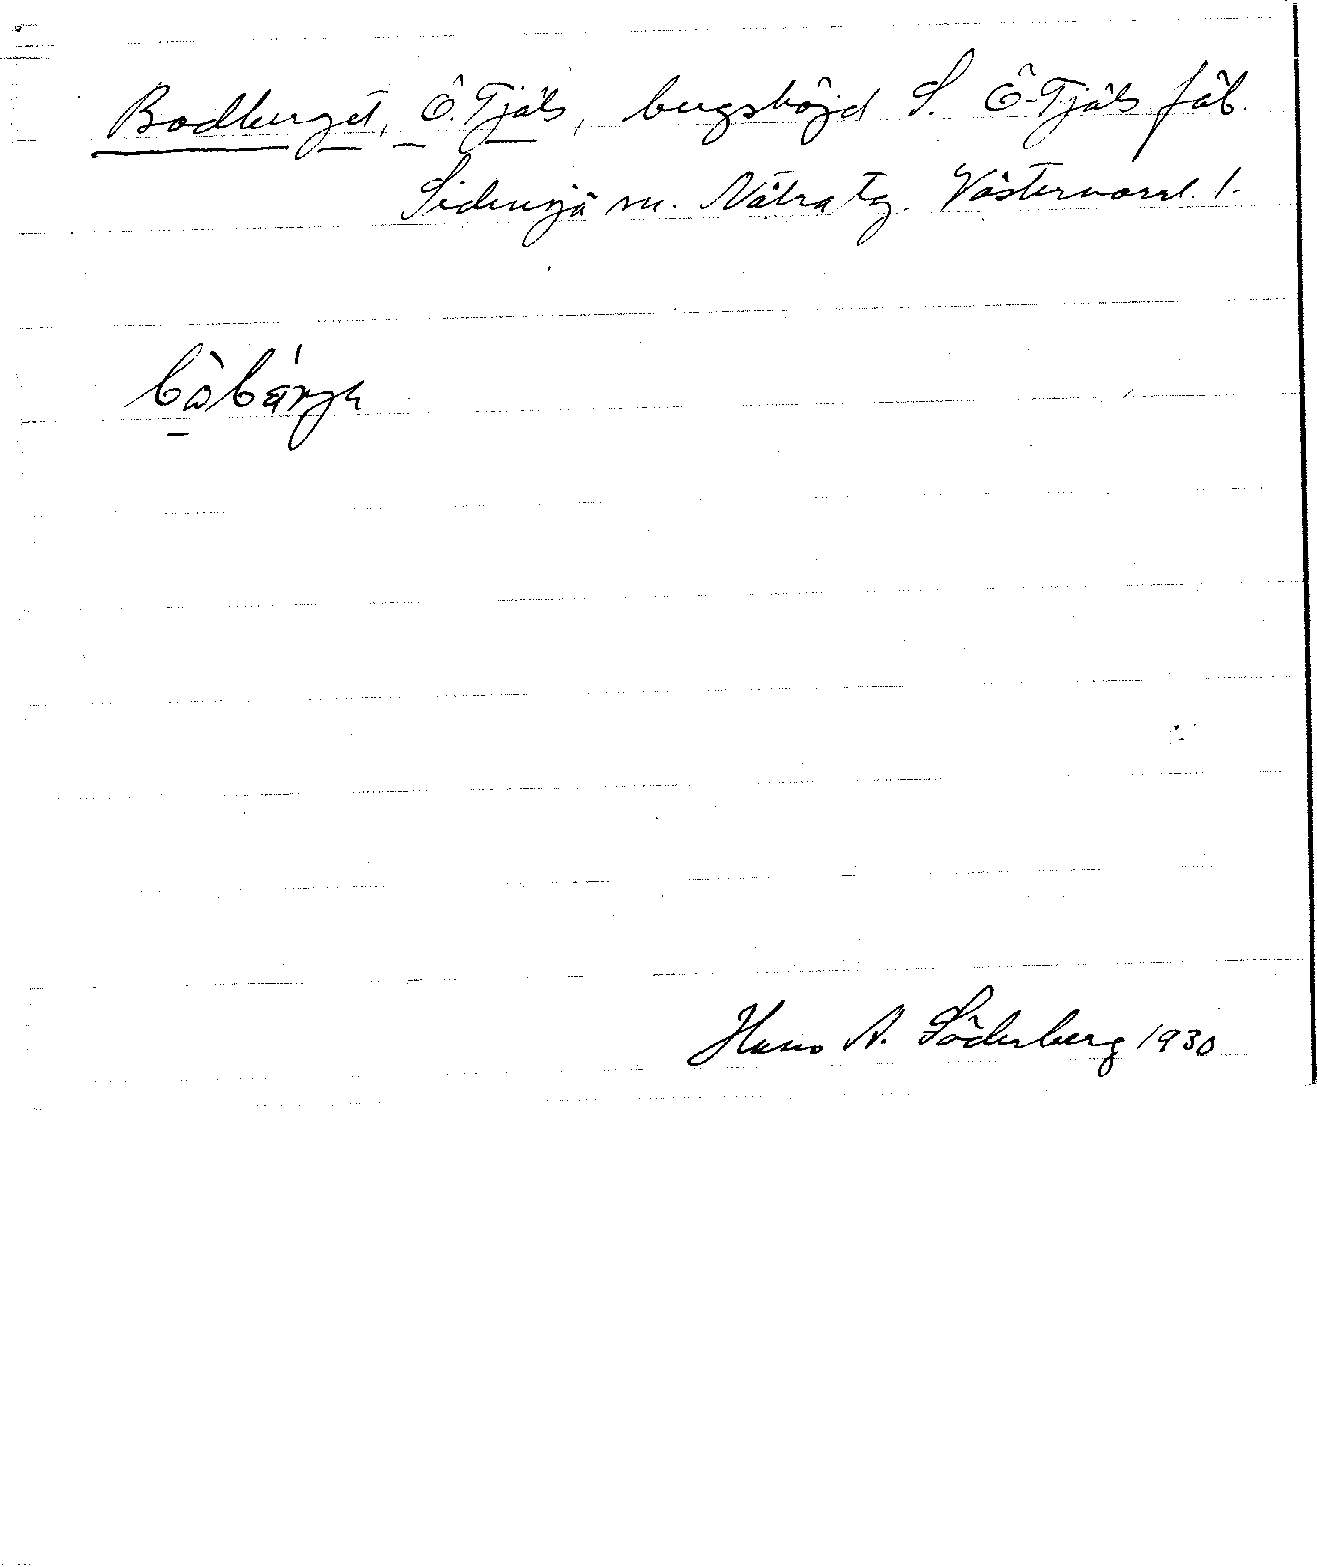 Bodberget, Ö. Tjäls, bergshöjd S. Ö-Tjäls fäb.
Sidensjö sn. Nätra tg. Västernorrl. l.
Hans A. Söderberg 1930